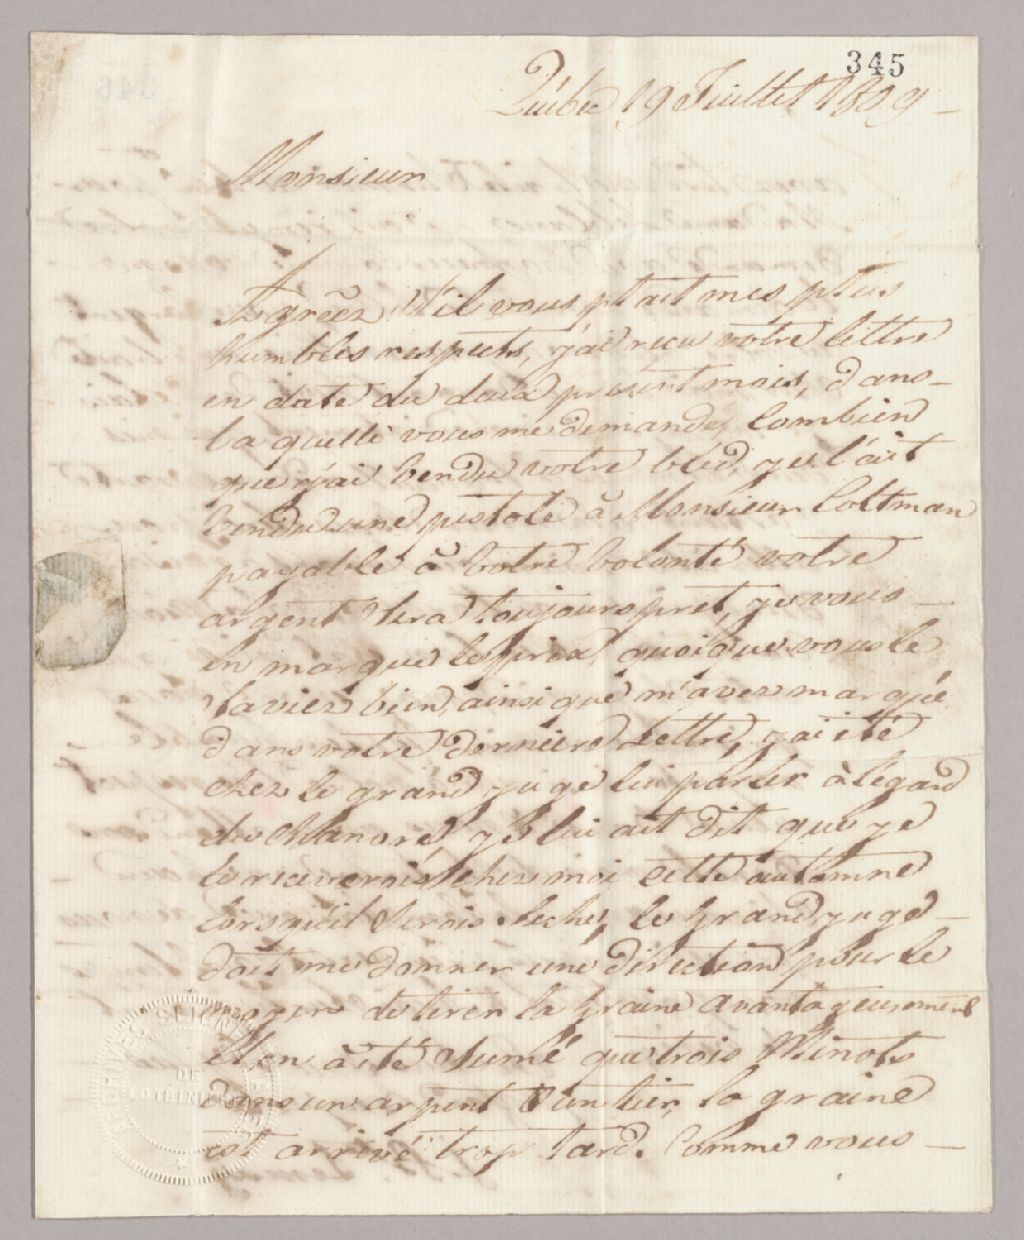 345
Québec 19 Juillet 1809
Monsieur
Agréez s'til vous plait mes plus
humbles respects, j'ai reçu votre lettre
en date du deux present mois, dans
la quelle vous me demandez Combien
que j'ai vendu votre bled, je l'ait
vendu une pistole à Monsieur Coltman
payable à votre volonté votre
argent sera toujours pret, je vous
en marque le prix quoique vous le
saviez bien, ainsi que m'avez marqué
dans votre derniere Lettre, j'ai été
chez le grand juge lui parler à l'egard
du Chanvre, je lui ait dit que je
le receverois chez moi cette automne
lorsquil serois seché, le Grand juge
doit me donner une direction pour le
de tirer la Graine avantageusement
il en à été sumé que trois Minots
dans un arpent la graine
est arrivé trop tard. Comme vous
ARCHIVES SEIGNEURIALES
DE
LOTBINIÈRE